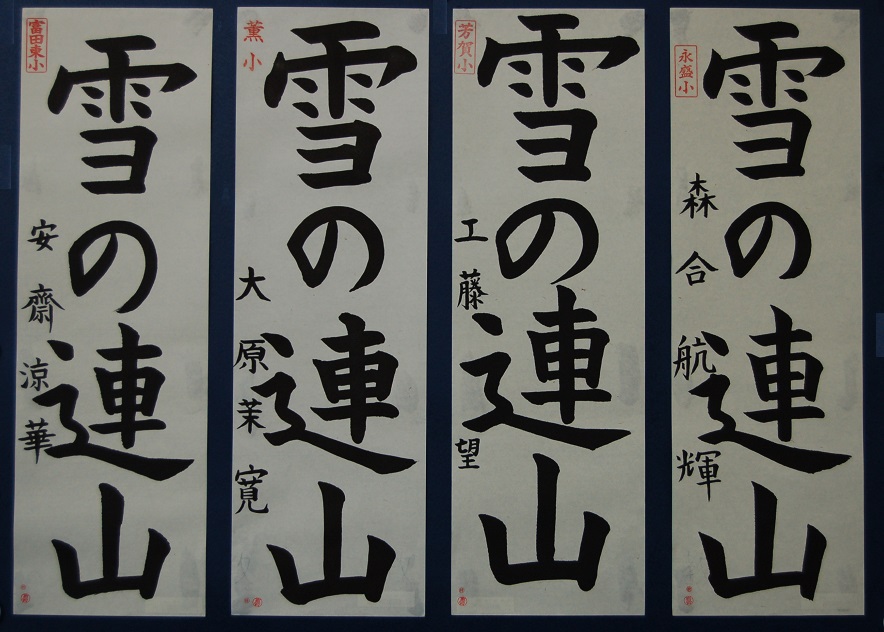 永盛小
雪の連山
森合航輝
芳賀小
雪の連山
工藤望
薫小
雪の連山
大原茉寛
富田東小
雪の連山
安齋涼華